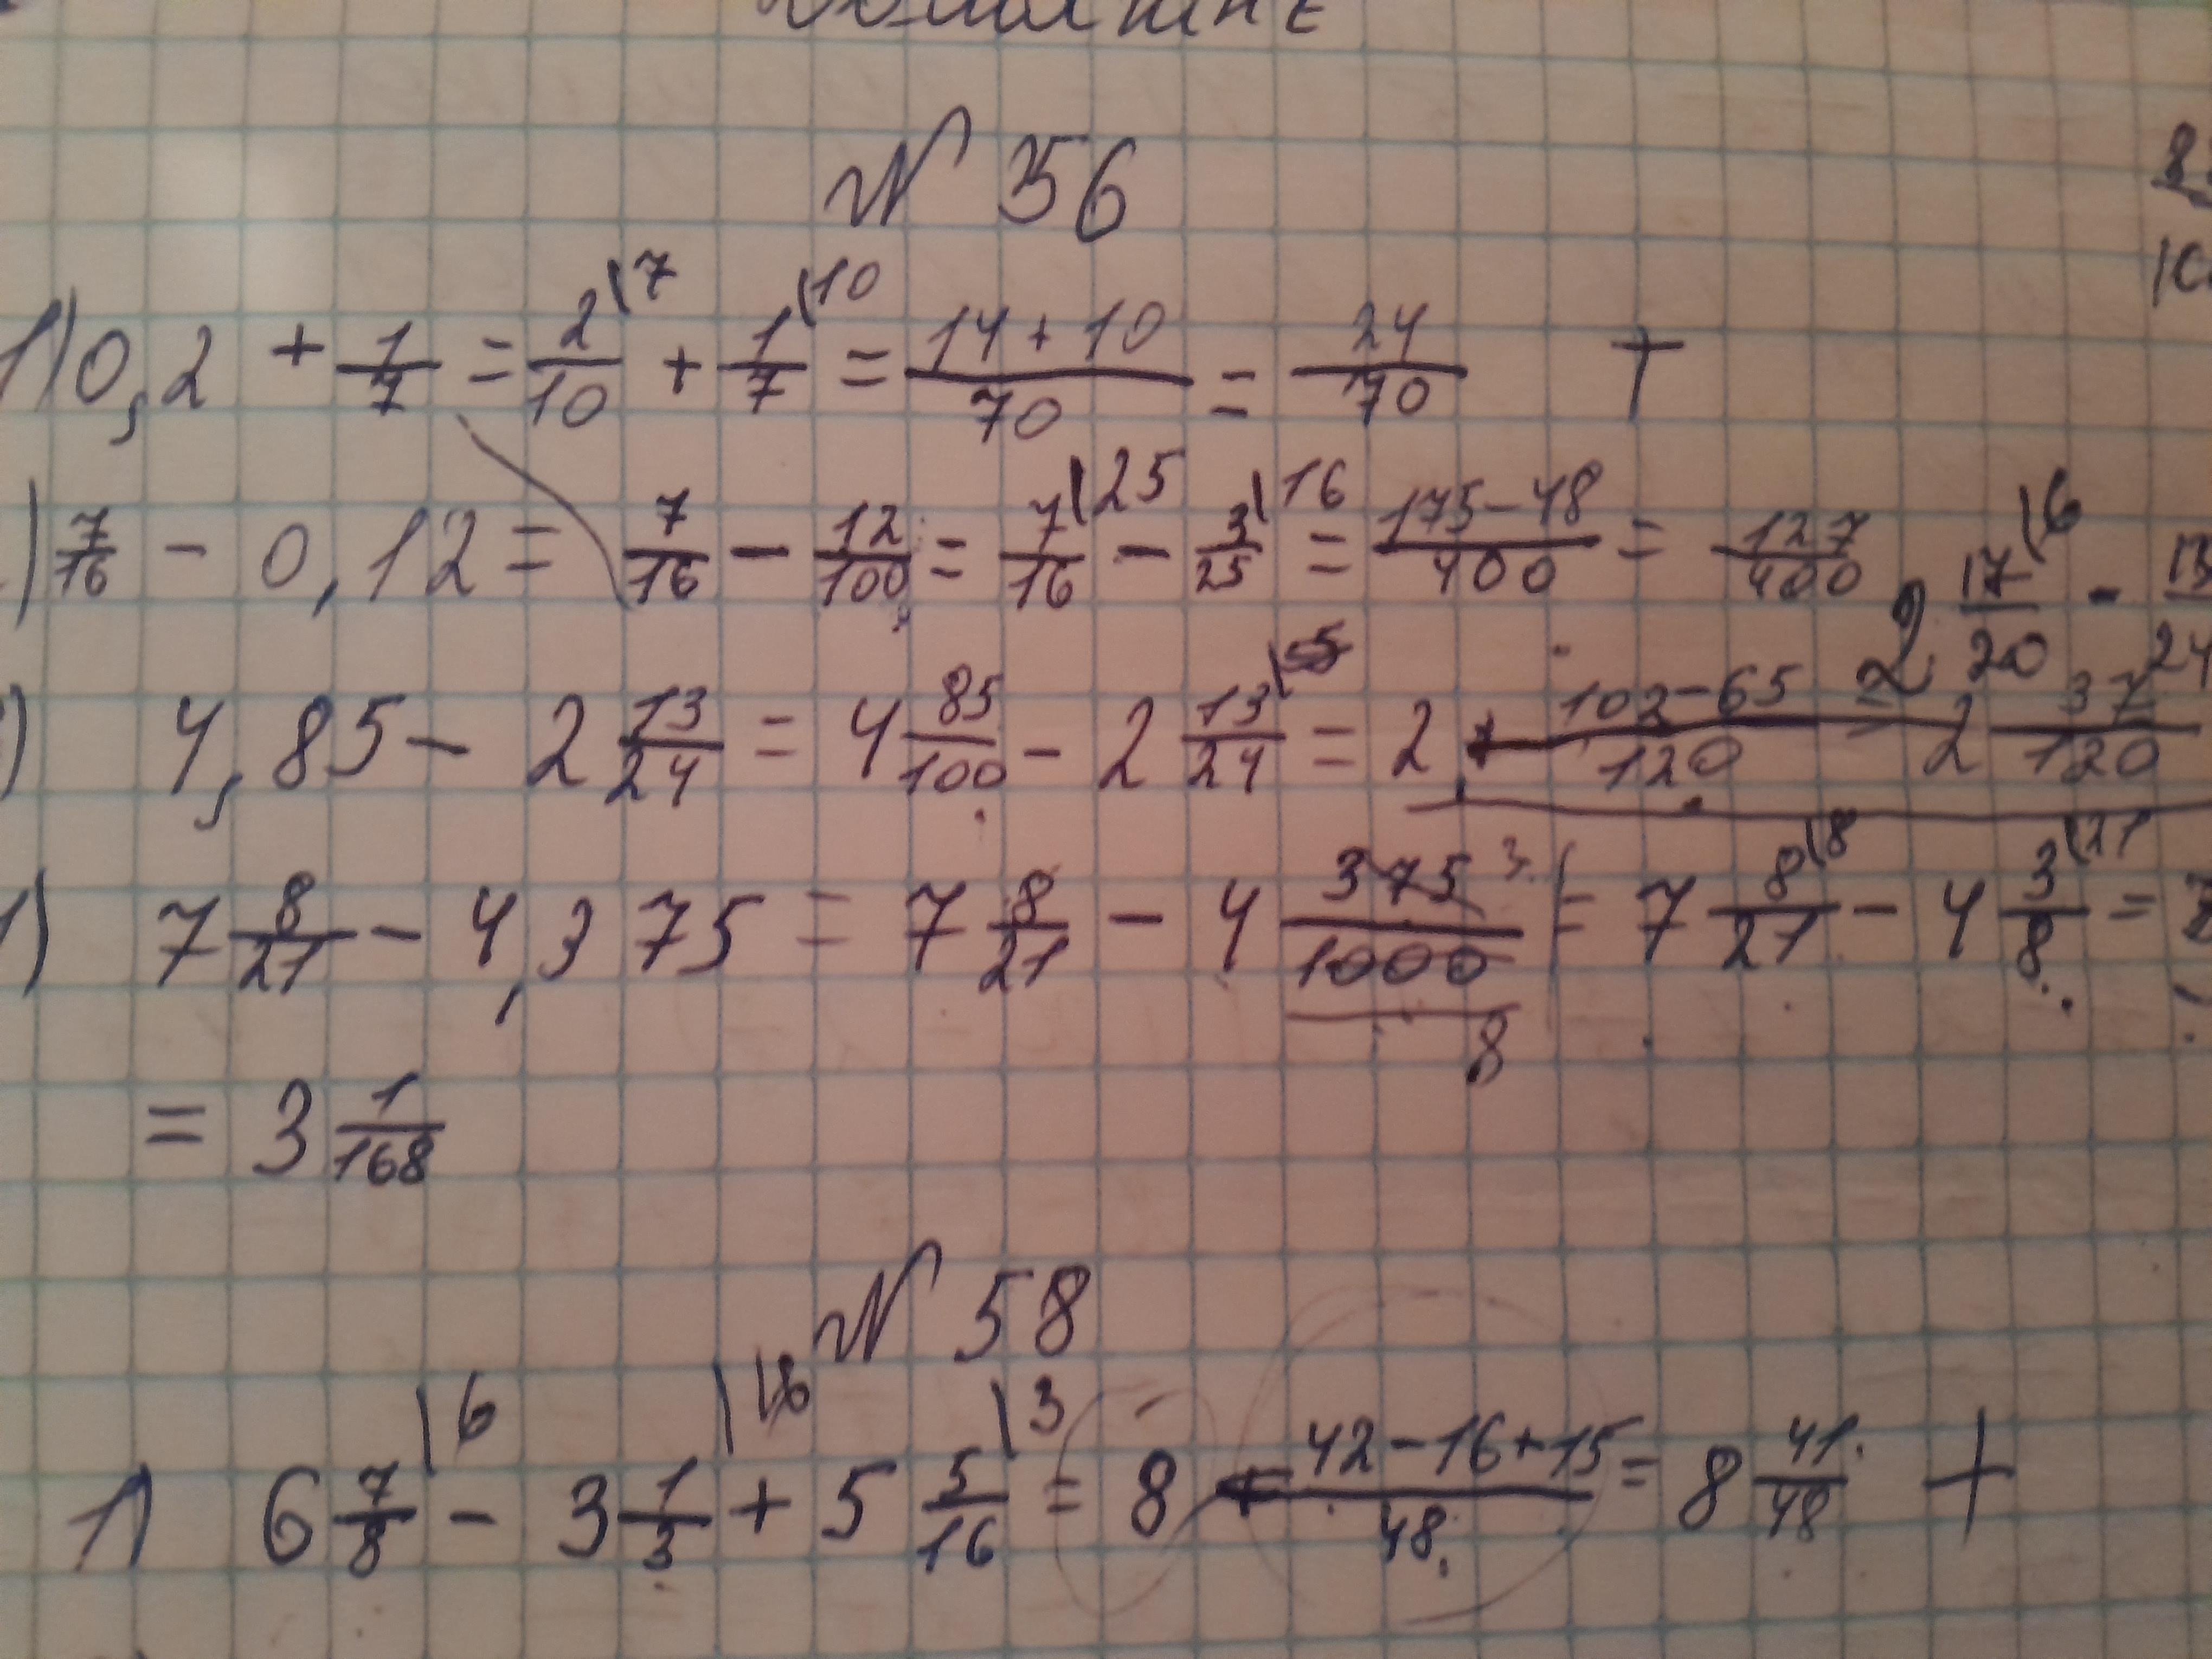 № 56
1) 0,2 + 1/7 = 2/10 \7 + 1/7 \10 = (14 + 10)/70 = 24/70 +
) 7/16 - 0,12 = 7/16 - 12/100 = 7/16 \25 - 3/25 \16 = (175 - 48)/400 = 127/400
2 17/20 \6 - 13/24
) 4,85 - 2 13/24 = 4 85/100 - 2 13/24 \5 = 2 + (102 - 65)/120 = 2 37/120
) 7 8/21 - 4,375 = 7 8/21 - 4 375/1000 3/8 = 7 8/21 \8 - 4 3/8 \21 =
= 3 1/168
№ 58
1) 6 7/8 \6 - 3 1/3 \16 + 5 5/16 \3 = 8 + (42 - 16 + 15)/48 = 8 41/48 +